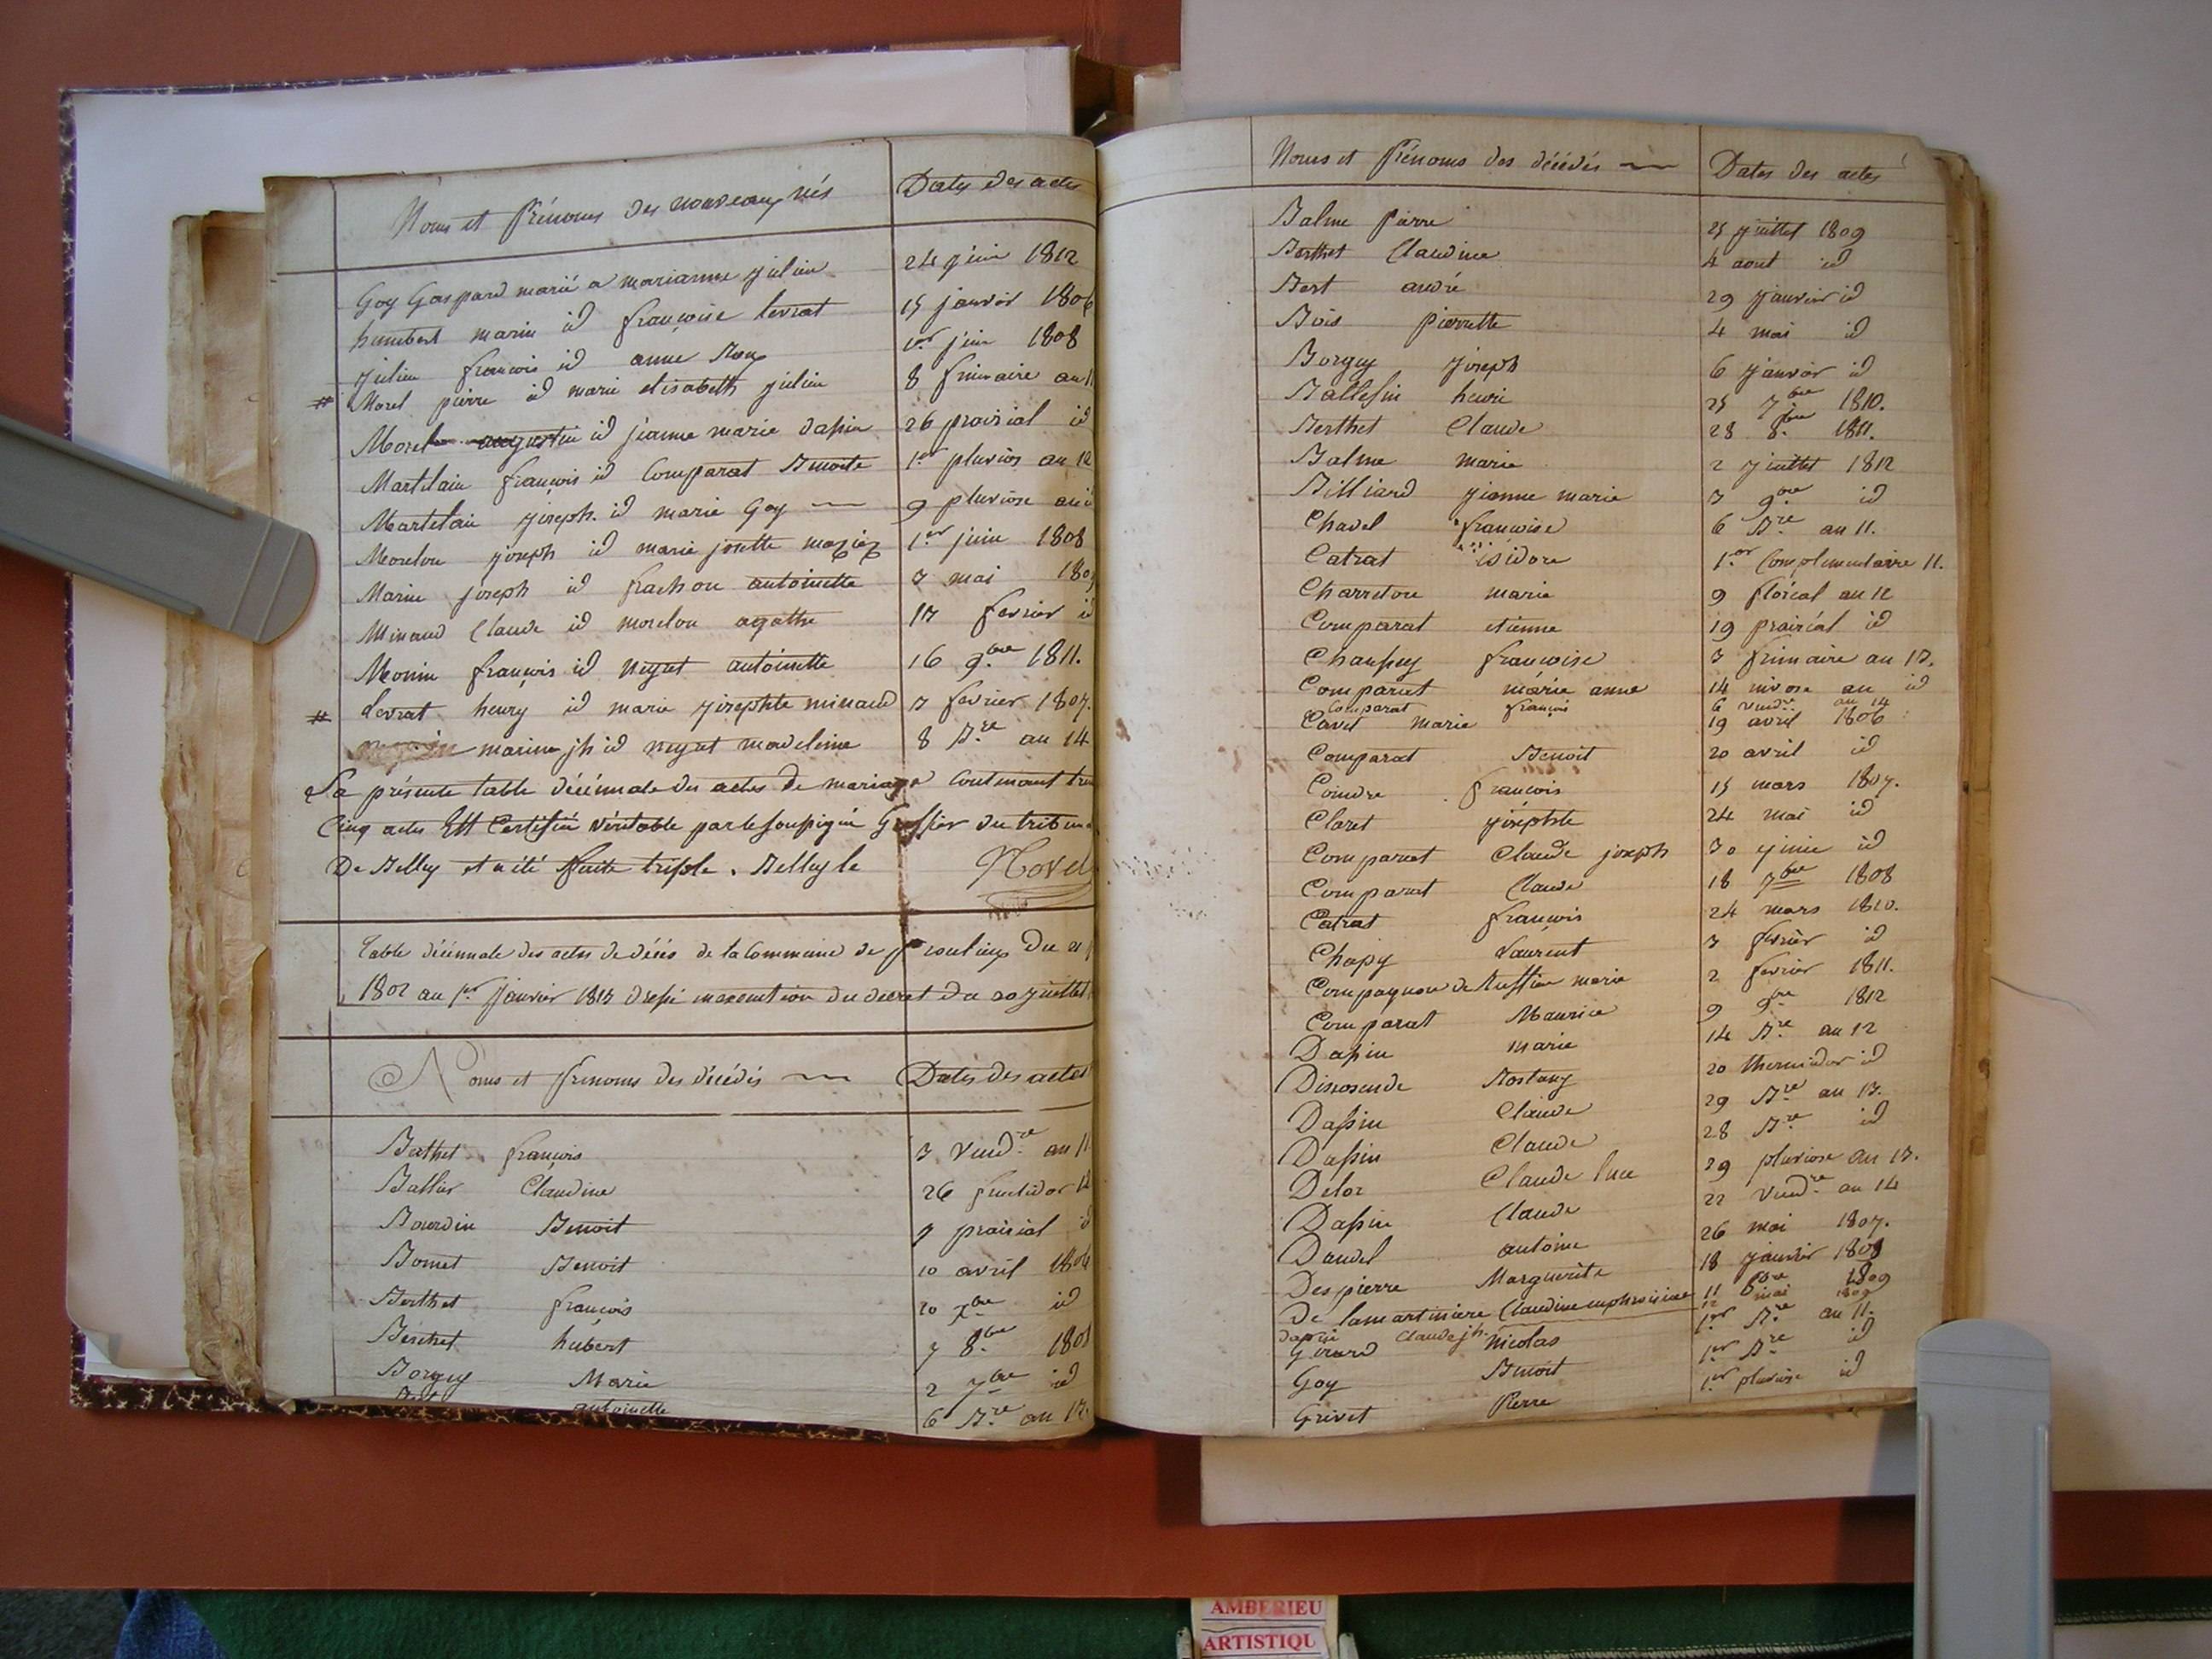 Noms et Prénoms des nouveaux nés Dates des actes
Goy Gaspard marié a marianne julien 24 juin 1812
humbert marin id françoise levrat 15 janvier 1806
julien francois id anne Roux 1er juin 1808
# Morel pierre id marie elisabeth julien 8 frimaire an 11
Morel augustin id jeanne marie dapin 26 prairial id
Martelain françois id Comparat Benoite 1er pluvios an 12
Martelain joseph id marie Goy 9 pluviose an id
Morelon joseph id marie josette 1er juin 1808
Marin joseph id frachon antoinette 3 mai 180
Minaud Claude id morelon agathe 17 fevrier id
Monin françois id neyret antoinette 16 9bre 1811.
# Levrat henry id marie josephte minaud 3 fevrier 1807.
marin jh id neyret madeleine 8 Bre an 14
La présente table décénnale des actes de mariage Contenant
Cinq actes Est Certifiée véritable par le soussigné Greffier du tribun
De Belley et a été faite triple. Belley le Novel
Table décénnale des actes de décès de la Commune de proulieu Du
1802 au 1er Janvier 1813 en execution du decret du 20 juillet
Noms et Prenoms des décédés Dates des actes
Berthet françois 3 Vendre an 11
Ballier Claudine 26 fructidor 12
Bourdin Benoit 9 prairial id
Bomet Benoit 10 avril 1806
Berthet françois 20 id
Berthet hubert 7 8bre 1808
Borgey Marie 2 7bre id
antoinette 6 Bre an 13.
Noms et Prénoms des décédés Dates des actes
Balme Pierre 25 juillet 1809
Berthet Claudine 4 aout id
Bert andré 29 janvier id
Bois pierrette 4 mai id
Borgey joseph 6 janvier id
Ballefin henri 25 7bre 1810.
Berthet Claude 28 8bre 1811.
Balme marie 2 juillet 1812
Billiard jeanne marie 3 9bre id
Chavel françoise 6 Bre an 11.
Catrat isidore 1er Complementaire 11.
Charreton marie 9 floréal an 12
Comparat etienne 19 prairéal id
françoise 3 frimaire an 13.
Comparat marie anne 14 nivose an id
Comparat françois 6 vendre an 14
Cavet marie 19 avril 1806
Comparat Benoit 20 avril id
Coindre françois 15 mars 1807.
Claret joséphte 24 mai id
Comparat Claude joseph 30 juin id
Comparat Claude 18 7bre 1808
Catrat françois 24 mars 1810.
Chapy Laurent 3 fevrier id
Compagnon de Ruffieu marie 2 fevrier 1811.
Comparat Maurice 9 9bre 1812
Dapin marie 14 Bre an 12
20 thermidor id
Dapin Claude 29 Bre an 13.
Dapin Claude 28 Bre id
Deloz Claude luce 29 pluviose an 13.
Dapin Claude 22 Vendre an 14
Dandel antoine 26 mai 1807.
Despierre Marguerite 18 janvier 1808
De lamartiniere Claudine euphroisine 11 8bre 1809
dapin Claude jh. 12 mai 1809
Girard Nicolas 1er Bre an 11.
Goy Benoit 1er Bre id
Grivet Pierre 1er pluviose id
AMBERIEU
ARTISTIQU